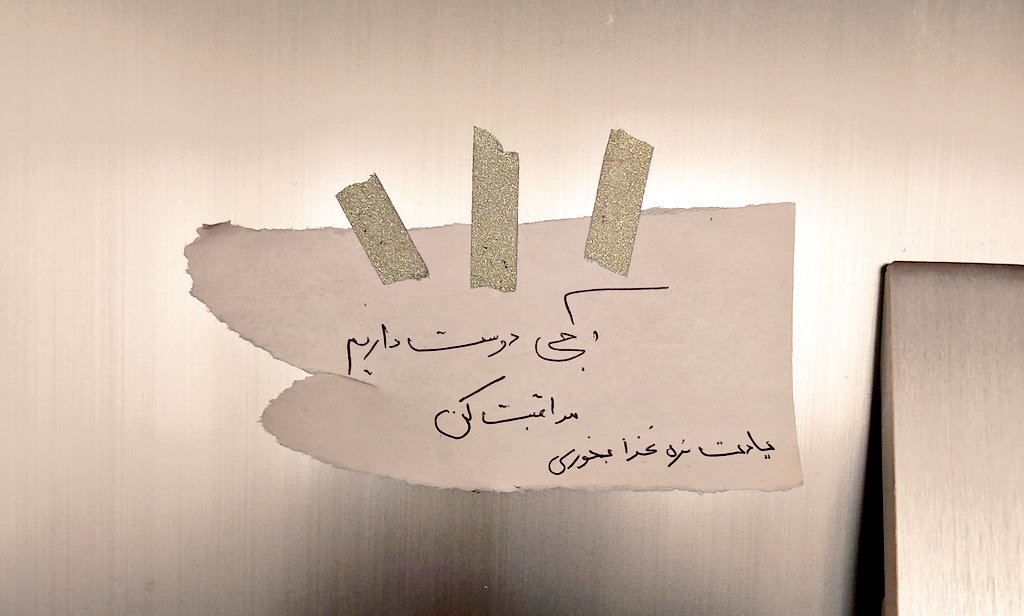 دوست داریم
مراقبت کن
یادت نره غذا بخوری